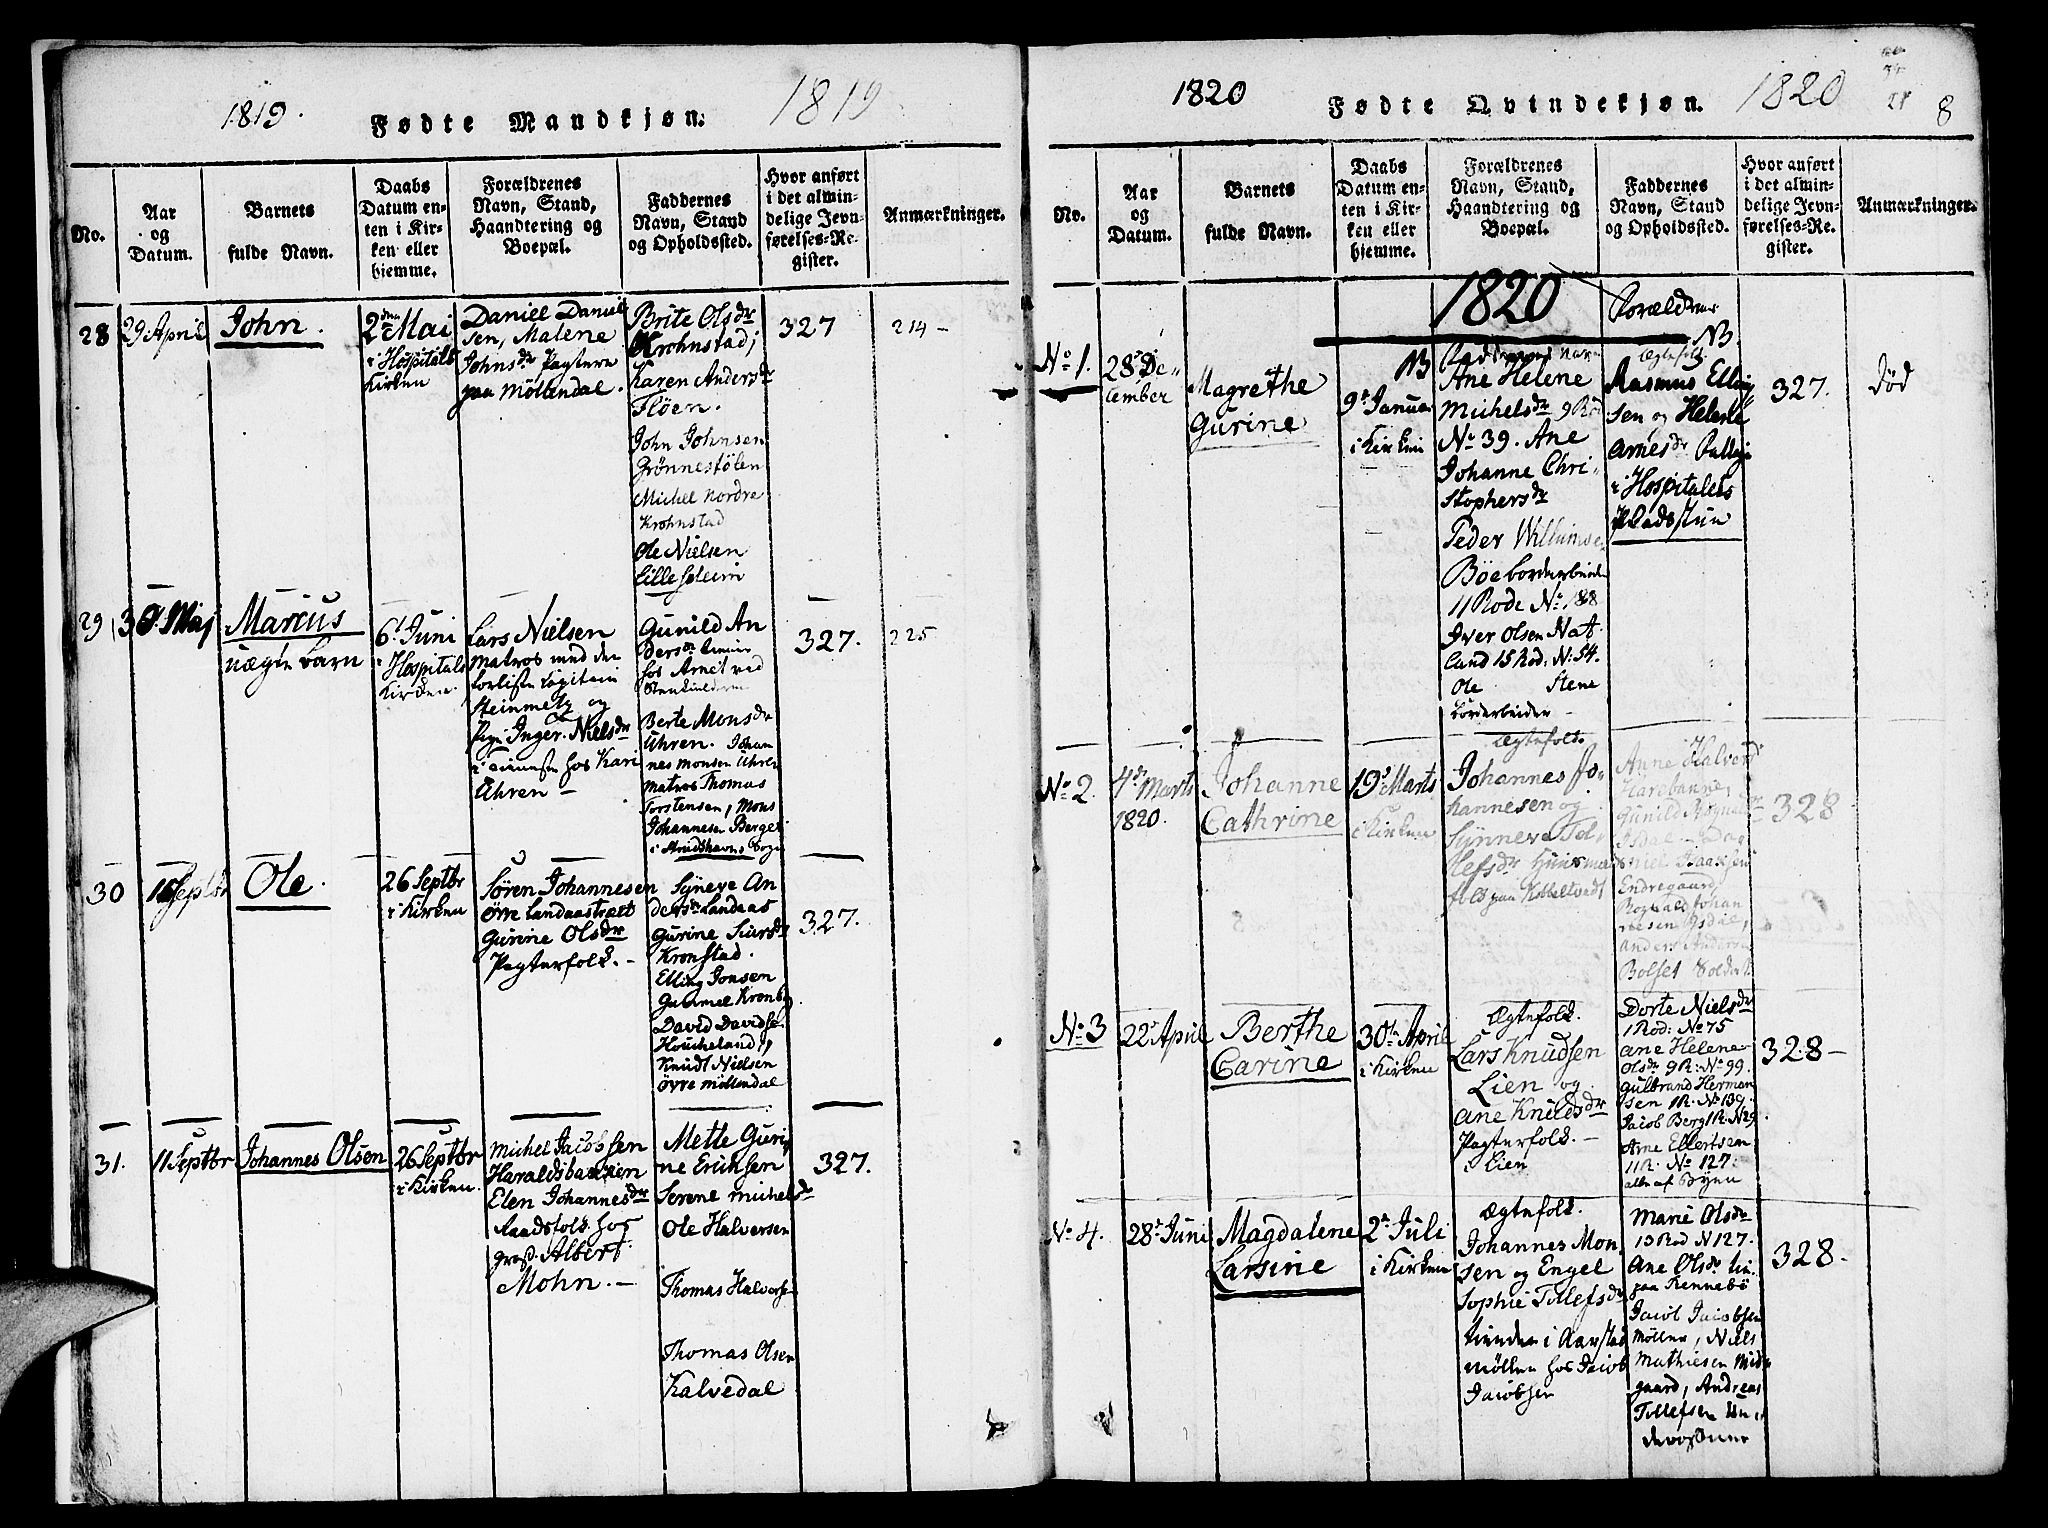 1819.
Fødte Mandkjøn.
1819
No.
Aar
og
Datum.
Barnets
fulde Navn.
Daabs
Datum en-
ten i Kir-
ken eller
hjemme.
Forældrenes
Navn, Stand,
Haandtering og
Boepæl.
Faddernes
Navn, Stand
og Opholdssted.
Hvor anført
i det almin-
delige Jevn-
førelses-Re-
gister.
Anmærkninger.
28
29 April
John.
2den Mai
i Hospitals
Kirken
Daniel Daniel
sen, Malene
Johnsdr Pagtere
paa Möllendal.
Brite Olsdr
Krohnstad,
Karen Andersdr
Flöen.
John Johnsen
Grönnestölen
Michel Nordre
Krohnstad
Ole Nielsen
Lille
327
214 -
29
30 Maj
Marcus
uægte barn
6t Juni
i Hospitals
Kirken.
Lars Nielsen
Matros med den
forliste Capitain
Steinmetz og
Pige Inger Nielsdr
i tieneste hos Kari
Uhren -
Gunild An
dersdr
hos Arnet ved
Berte Monsdr
Uhren. Johan
nes Monsen Uhren
Matros Thomas
Torstensen, Mons
Johannesen Berge
i Strudshavns Sogn
327.
225
30
Septbr
Ole.
26 Septbr
i Kirken
Sören Johannesen
Övre Landaastræt
Gurine Olsdr
Pagterfolk. -
Syneve An
dersdr Landaas
Gurine Siursdr
Kronstad.
Elling Jonsen
Gammel Kronby
David Davidse.
Houcheland,
Knudt Nielsen
Övre Möllendal
327.
31.
11 Septbr
Johannes Olsen
26 Septbr
i Kirken.
Michel Jacobsen
Haraldsbakken
Elen Johannesdr
hos
Albert
Mohn. -
Mette Guri
ne Ericksen
Serene Michelsdr
Ole Halversen
Thomas Halverse
Thomas Olsen
Kalvedal
327.
1820
Fødte Qvindekjøn.
1820
21
8
No.
Aar
og
Datum.
Barnets
fulde Navn.
Daabs
Datum en-
ten i Kir-
ken eller
hjemme.
Forældrenes
Navn, Stand,
Haandtering og
Boepæl.
Faddernes
Navn, Stand
og Opholdssted.
Hvor anført
i det almin-
delige Jevn-
førelses-Re-
gister.
Anmærkninger.
1820
Forældrene
NB.
No 1.
28 De-
cember
Magrethe
Gurine
NB
9t Januar
i Kirken
Ane Helene
Michelsdr 9 Rod
No 39. Ane
Johanne Chri-
stophersdr
Peder Willumse
Böeborderbeider
11 Rode No 188
Iver Olsen Nat
land 15 Rod: N: 54.
Ole Stene
borderbeider -
Ægtefolk.
Rasmus Elling
sen og Helene
Arnesdr
i Hospitalets
327.
død
No 2.
4de Marts
1820.
Johanne
Cathrine
19de Marts
i Kirken
Ægtefolk.
Johannes Jo-
hannesen og
Synneve Del-
lefsdr Huusmands
folk paa Kobbeltvedt
Anne Halversdr
Harebanne,
Gunild Rognaldsdr
Isdal - Da-
niel Haaksen
Endregaard,
Rognald Johan
nesen Isdal,
Anders Andersen
Bolset Soldat
328
No 3
22 April
Berthe
Carine
30te April
i Kirken
Ægtefolk.
Lars Knudsen
Lien og
Ane Knudsdr
Pagterfolk. -
i Lien
Dorte Nielsdr
1 Rod: No 75
Ane Helene
Olsdr 9 R: No 99.
Gulbrand Herman
sen 1 R. No 139.
Jacob Berg 1 R. N 29.
Arne Ellertsen
11 R. No 127.
alle af Byen
328 -
No 4.
28 Juni
Magdalene
Larsine
2t Juli
i Kirken
Ægtefolk.
Johannes Mon
sen og Engel
Sophie Tillefsdr
tienden i Aarstad
Möllen hos Jacob
Jacobsen
Marie Olsdr
13 Rod N 127.
Ane Olsdr
paa Kennebö
Jacob Jacobsen
Möller, Niels
Mathiesen Mid-
gaard, Andreas
Tillefsen Un-
328.